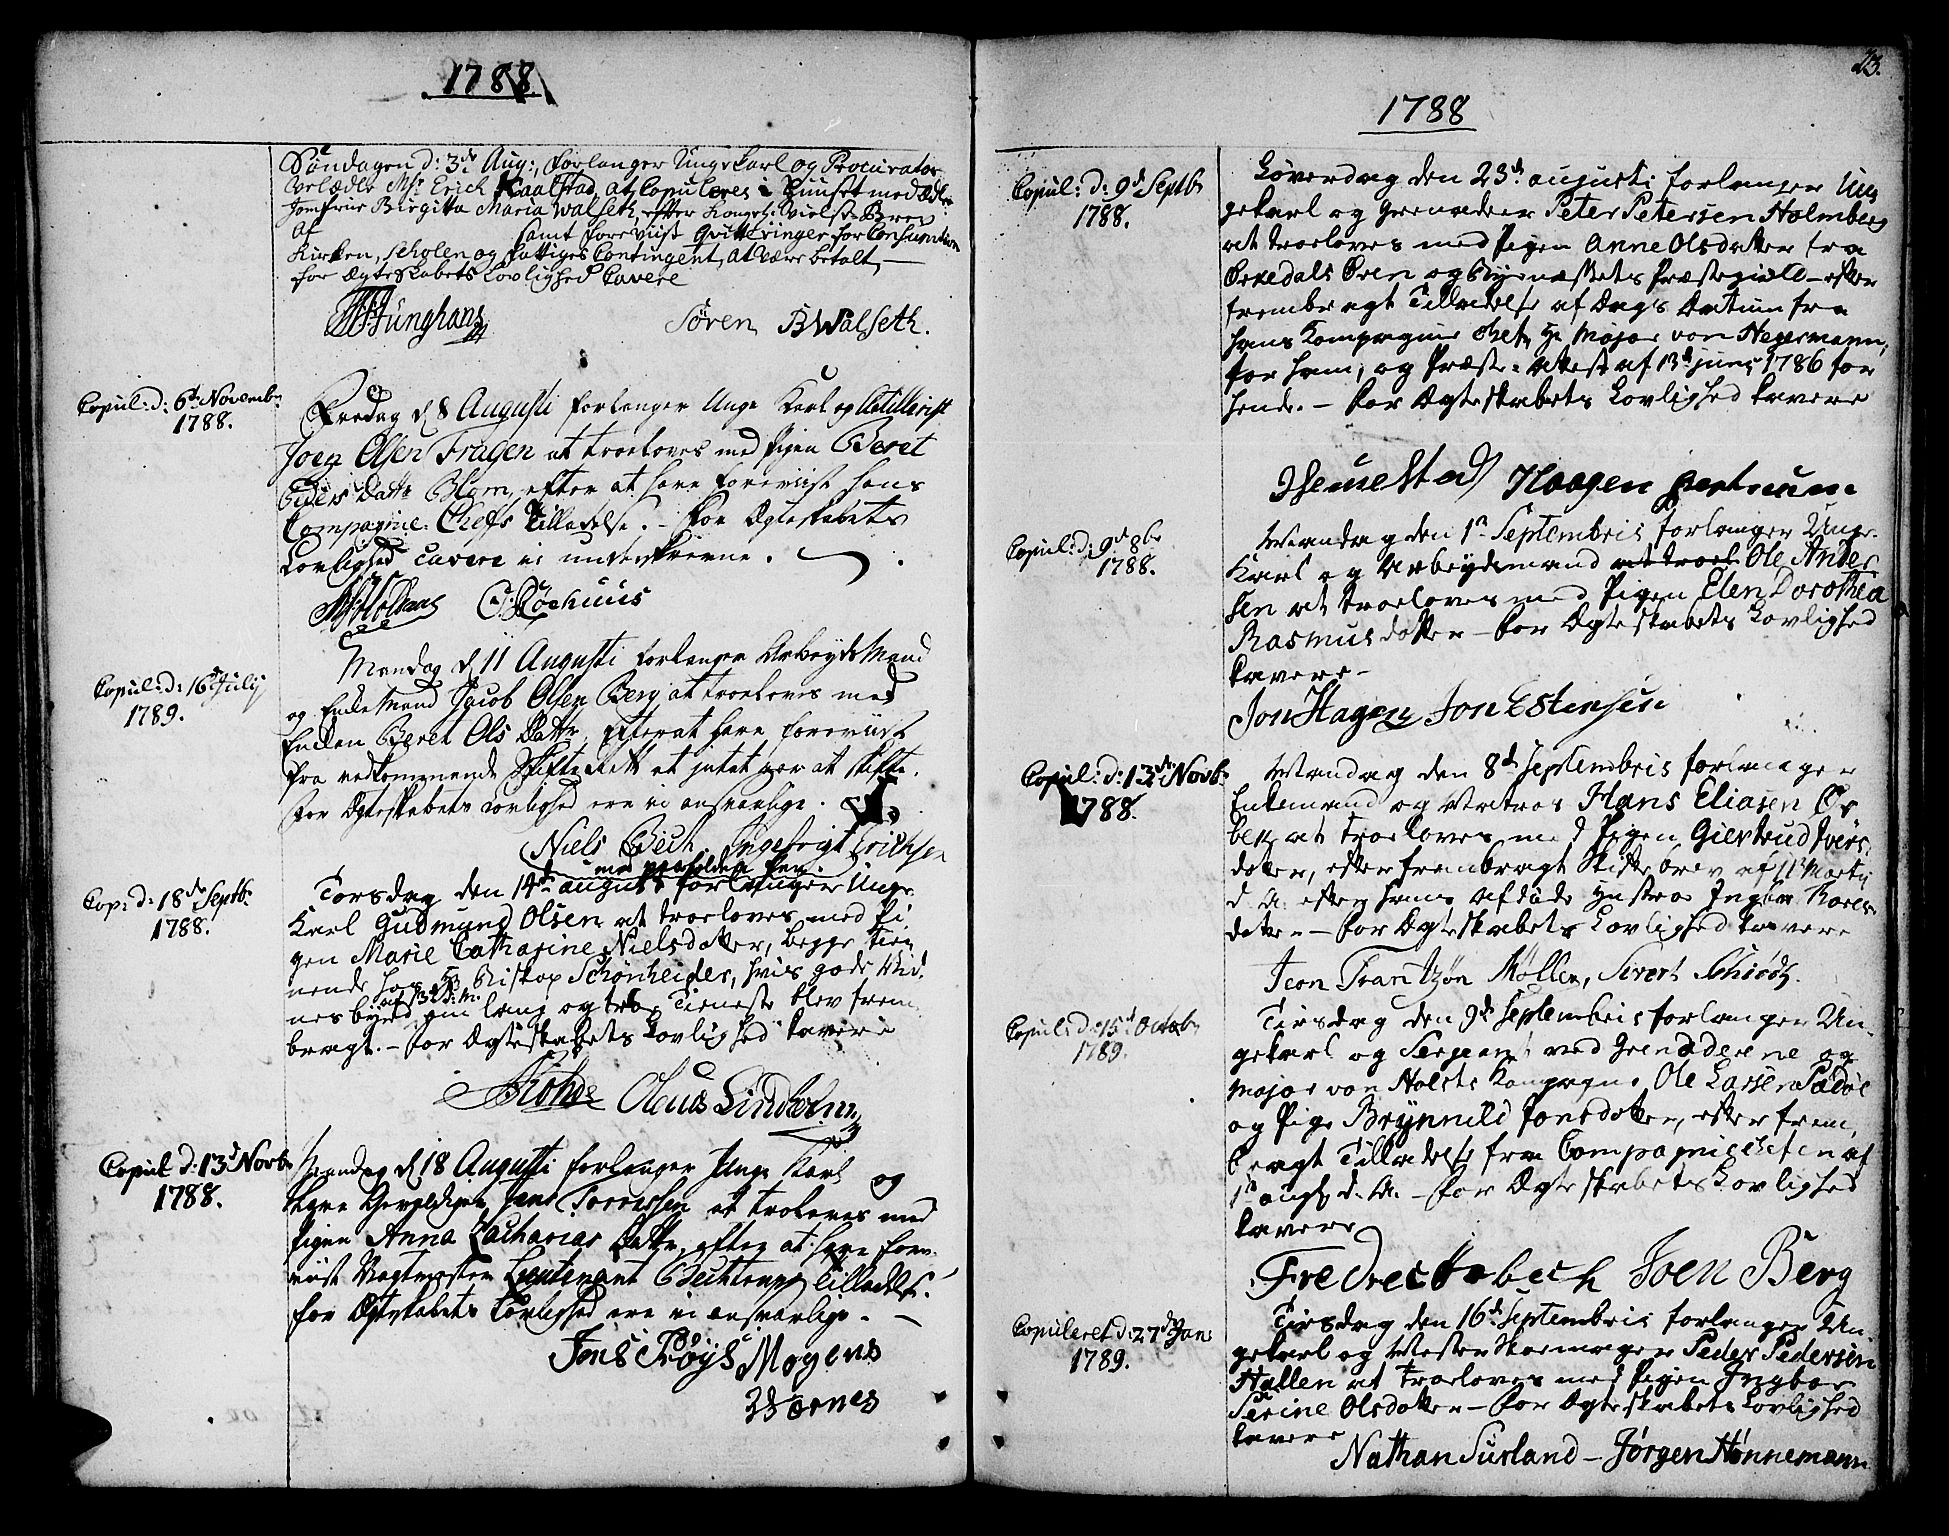 1788
Søndagen d: 3de Aug: forlanger Ungekarl og Procurator
Velædle Msr Erich Kaalstad, at Copuleres i Huuset med Ædle
Jomfrue Birgitta Maria Walseth, efter Kongel: Vielse Brev
af samt foreviist Qvitteringer for Consumtion
Kirken, Scholen og Fattiges Contingent, at være betalt,
for Ægteskabets Lovlighed Cavere
Junghans Søren BWalseth.
Copul: d: 6te Novembr
1788.
Fredag d 8 Augusti forlanger Unge Karl og Artillerist
Joen Olsen Fragen at troeloves med Pigen Beret
Datter Blom, efter at have foreviist hans
Compagnie Chefs Tilladelse. - For Ægteskabets
Lovlighed Cavere vi underskrevne.
Holtans C: Rochuus
Copul: d: 16 Julij
1789.
Mandag d 11 Augusti forlanger Arbeyds Mand
og Enke Mand Jacob Olsen Berg at troeloves med
Enken Beret Ols Datter, Efter at have foreviist
fra vedkommende Skifte Rett at intet var at skifte.
For Ægteskabets Lovlighed ere vi ansvarlige.
Niels Bech Ingebrigt Erichsen
med paaholden Pen.
Cop: d: 18de Septb:
1788.
Torsdag den 14de august forlanger Unge
Karl Gudmund Olsen at troeloves med Pi
gen Marie Catharine Nielsdatter, begge tien
nende hos Hr Biskop Schønheider, hvis gode Vid-
nesbyrd om lang og troe Tieneste blev frem
bragt. - For Ægteskabets Lovlighed kavere
Rohde Oluus Lindholm
Copul d: 13d Novb:
1788.
Mandag d 18 Augusti forlanger Unge Karl og
Jens Torresen at troloves med
Pigen Anna Zacharias Datter, efter at have fore-
viist Vagtmester Lieutenant Tilladelse.
for Ægteskabets Lovlighed ere vi ansvarlige. -
Jens Røys Mogens
Wærnes
23.
1788
Copul: d: 9d Septbr
1788.
Løverdag den 23d augusti forlanger Un
gekarl og Grenadeer Peter Petersen Holmberg
at troeloves med Pigen Anne Olsdatter fra
Ørkedals Øren og Byenæssets Præstegield - efter
frembragt Tilladelse af Dags Datum fra
hans Kompagnie Chef, Hr Major von Hegermann,
for ham, og Præste-attest af 13d juni 1786 for
hende. - For Ægteskabets Lovlighed kavere
Hemelstad Haagen
Copul: d: 9d 8br
1788.
Mandag den 1te Septembris forlanger Unge-
Karl og Arbeydsmand at troel Ole Ander
sen at troeloves med Pigen Elen Dorothea
Rasmusdatter - For Ægteskabets Lovlighed
kavere -
Jon Hagen Jon Estensen
Copul: d: 13de Novbr
1788.
Mandag den 8d Septembris forlanger
Enkemand og Matros Hans Eliasen Ør
bek at troeloves med Pigen Giertrud Ivers-
datter, efter frembragt Skiftebrev af 11 Martij
d. A. efter hans afdøde Hustroe Ingbor Kares-
datter - For Ægteskabets Lovlighed kavere
Jeon Frantzøn Møller, Sivert Schiødtz.
Copul: d: 15d Octobr
1789.
Tirsdag den 9de Septembris forlanger Un-
gekarl og Sergeant ved Grenaderene og
Major von Holsts Kompagnie Ole Larsen Sadøe
og Pige Brynnild Jonsdatter, efter frem-
bragt Tilladelse fra Compagniechefen af
1te augt d. A. - For Ægteskabets Lovlighed
kavere
Fredrec Joen Berg
Copuleret d: 27d Jan:
1789.
Tirsdag den 16de Septembris forlanger Un-
gekarl og Mester Skomager Peder Pedersen
Hallen at troeloves med Pigen Ingbor
Serine Olsdatter - For Ægteskabets Lovlighed
kavere
Nathan Surland - Jørgen Hønnemann